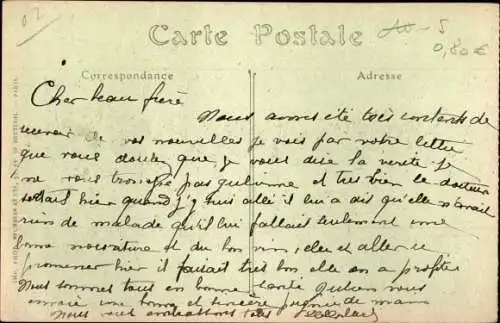 02
Carte Postale
5
0,80 €
Correspondance
Adresse
Cher beau frère
Nous avons été très contents de
recevoir de vos nouvelles je vois par votre lettre
que vous doutez que je vous dise la verité je
ne vous trompe pas qu'elle et très bien le docteur
sortait hier quand j'y suis allé il lui a dit qu'elle
rien de malade qu'il lui fallait seulement une
bonne nourriture et du bon vin, elle et allée se
promener hier il faisait très bon elle en a profité
Nous sommes tous en bonne santé
envoie une bonne et sincère poignée de main
Nous vous embrassons tous